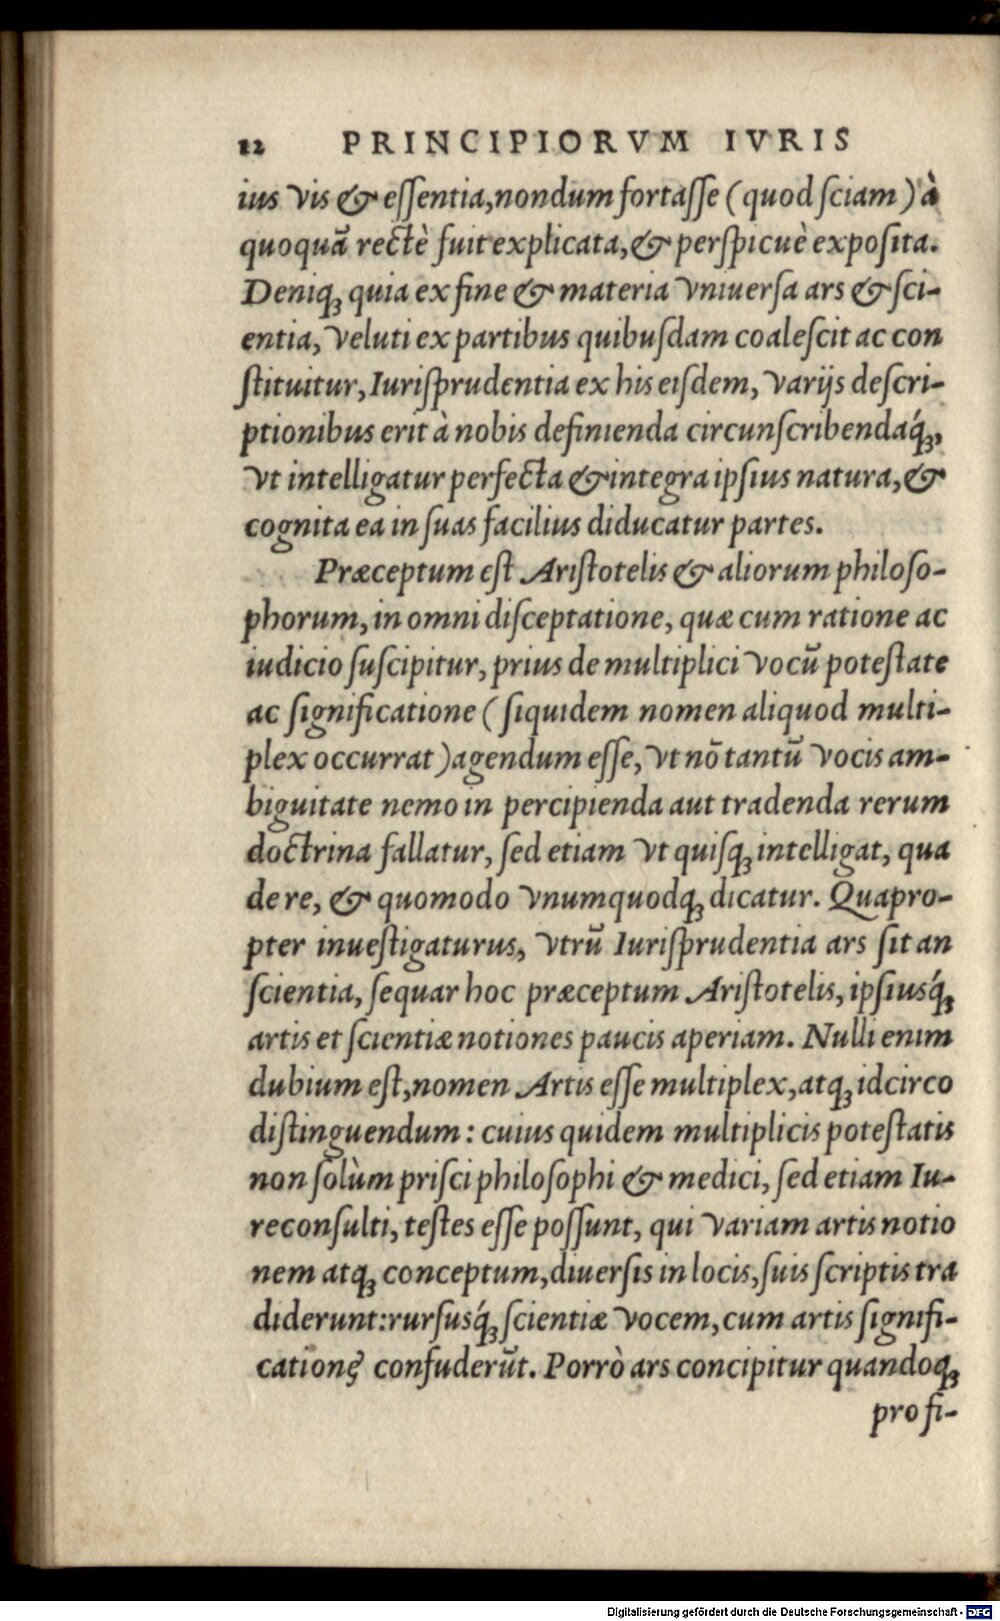 12 PRINCIPIORVM IVRIS
ius vis & eſſentia, nondum fortaſſe (quod ſciam) à
quoquā rectè fuit explicata, & perſpicuè expoſita.
Deniqꝫ quia ex fine & materia vniuerſa ars & ſci-
entia, veluti ex partibus quibuſdam coaleſcit ac con
ſtituitur, Iuriſprudentia ex his eiſdem, varijs deſcri-
ptionibus erit à nobis definienda circunſcribendaq́ꝫ,
vt intelligatur perfecta & integra ipſius natura, &
cognita ea in ſuas facilius diducatur partes.
Præceptum eſt Ariſtotelis & aliorum philoſo-
phorum, in omni diſceptatione, quæ cum ratione ac
iudicio ſuſcipitur, prius de multiplici vocū poteſtate
ac ſignificatione (ſiquidem nomen aliquod multi-
plex occurrat) agendum eſſe, vt nō tantū vocis am-
biguitate nemo in percipienda aut tradenda rerum
doctrina fallatur, ſed etiam vt quiſqꝫ intelligat, qua
de re, & quomodo vnumquodqꝫ dicatur. Quapro-
pter inueſtigaturus, vtrū Iuriſprudentia ars ſit an
ſcientia, ſequar hoc præceptum Ariſtotelis, ipſiusq́ꝫ
artis et ſcientiæ notiones paucis aperiam. Nulli enim
dubium eſt, nomen Artis eſſe multiplex, atqꝫ idcirco
diſtinguendum: cuius quidem multiplicis poteſtatis
non ſolùm priſci philoſophi & medici, ſed etiam Iu-
reconſulti, teſtes eſſe poſſunt, qui variam artis notio
nem atqꝫ conceptum, diuerſis in locis, ſuis ſcriptis tra
diderunt: rurſusq́ꝫ ſcientiæ vocem, cum artis ſignifi-
cationę confuderūt. Porrò ars concipitur quandoqꝫ
pro fi-
Digitalisierung gefördert durch die Deutsche Forschungsgemeinschaft - DFG